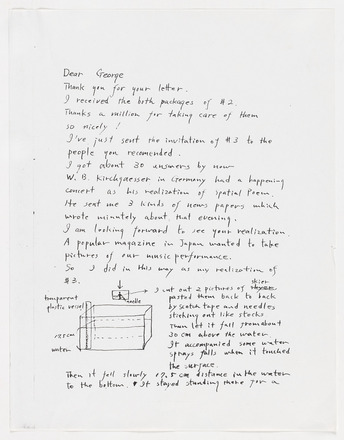 Dear George
Thank you for your letter.
I received the both packages of #2.
Thanks a million for taking care of them
so nicely!
I've just sent the invitation of #3 to the
people you recomended.
I got about 30 answers by now
W. B. Kirchgaesser in Germany had a happening
concert as his realization of spatial Poem.
He sent me 3 kinds of news papers which
wrote minutely about that evening.
I am looking forward to see your realization
A popular magazine in Japan wanted to take
pictures of our music performance.
So I did in this way as my realization of
#3.
I cut out 2 pictures of skier
pasted them back to back
by Scotch tape and needles
sticking out like stocks
Then let it fall from about
30 cm above the water
It accompanied some water
sprays falls when it touched
the surface.
needle
transparent
plastic vessel
water
Then it fell slowly 17.5 cm distance in the water
to the bottom. It stayed standing there for a